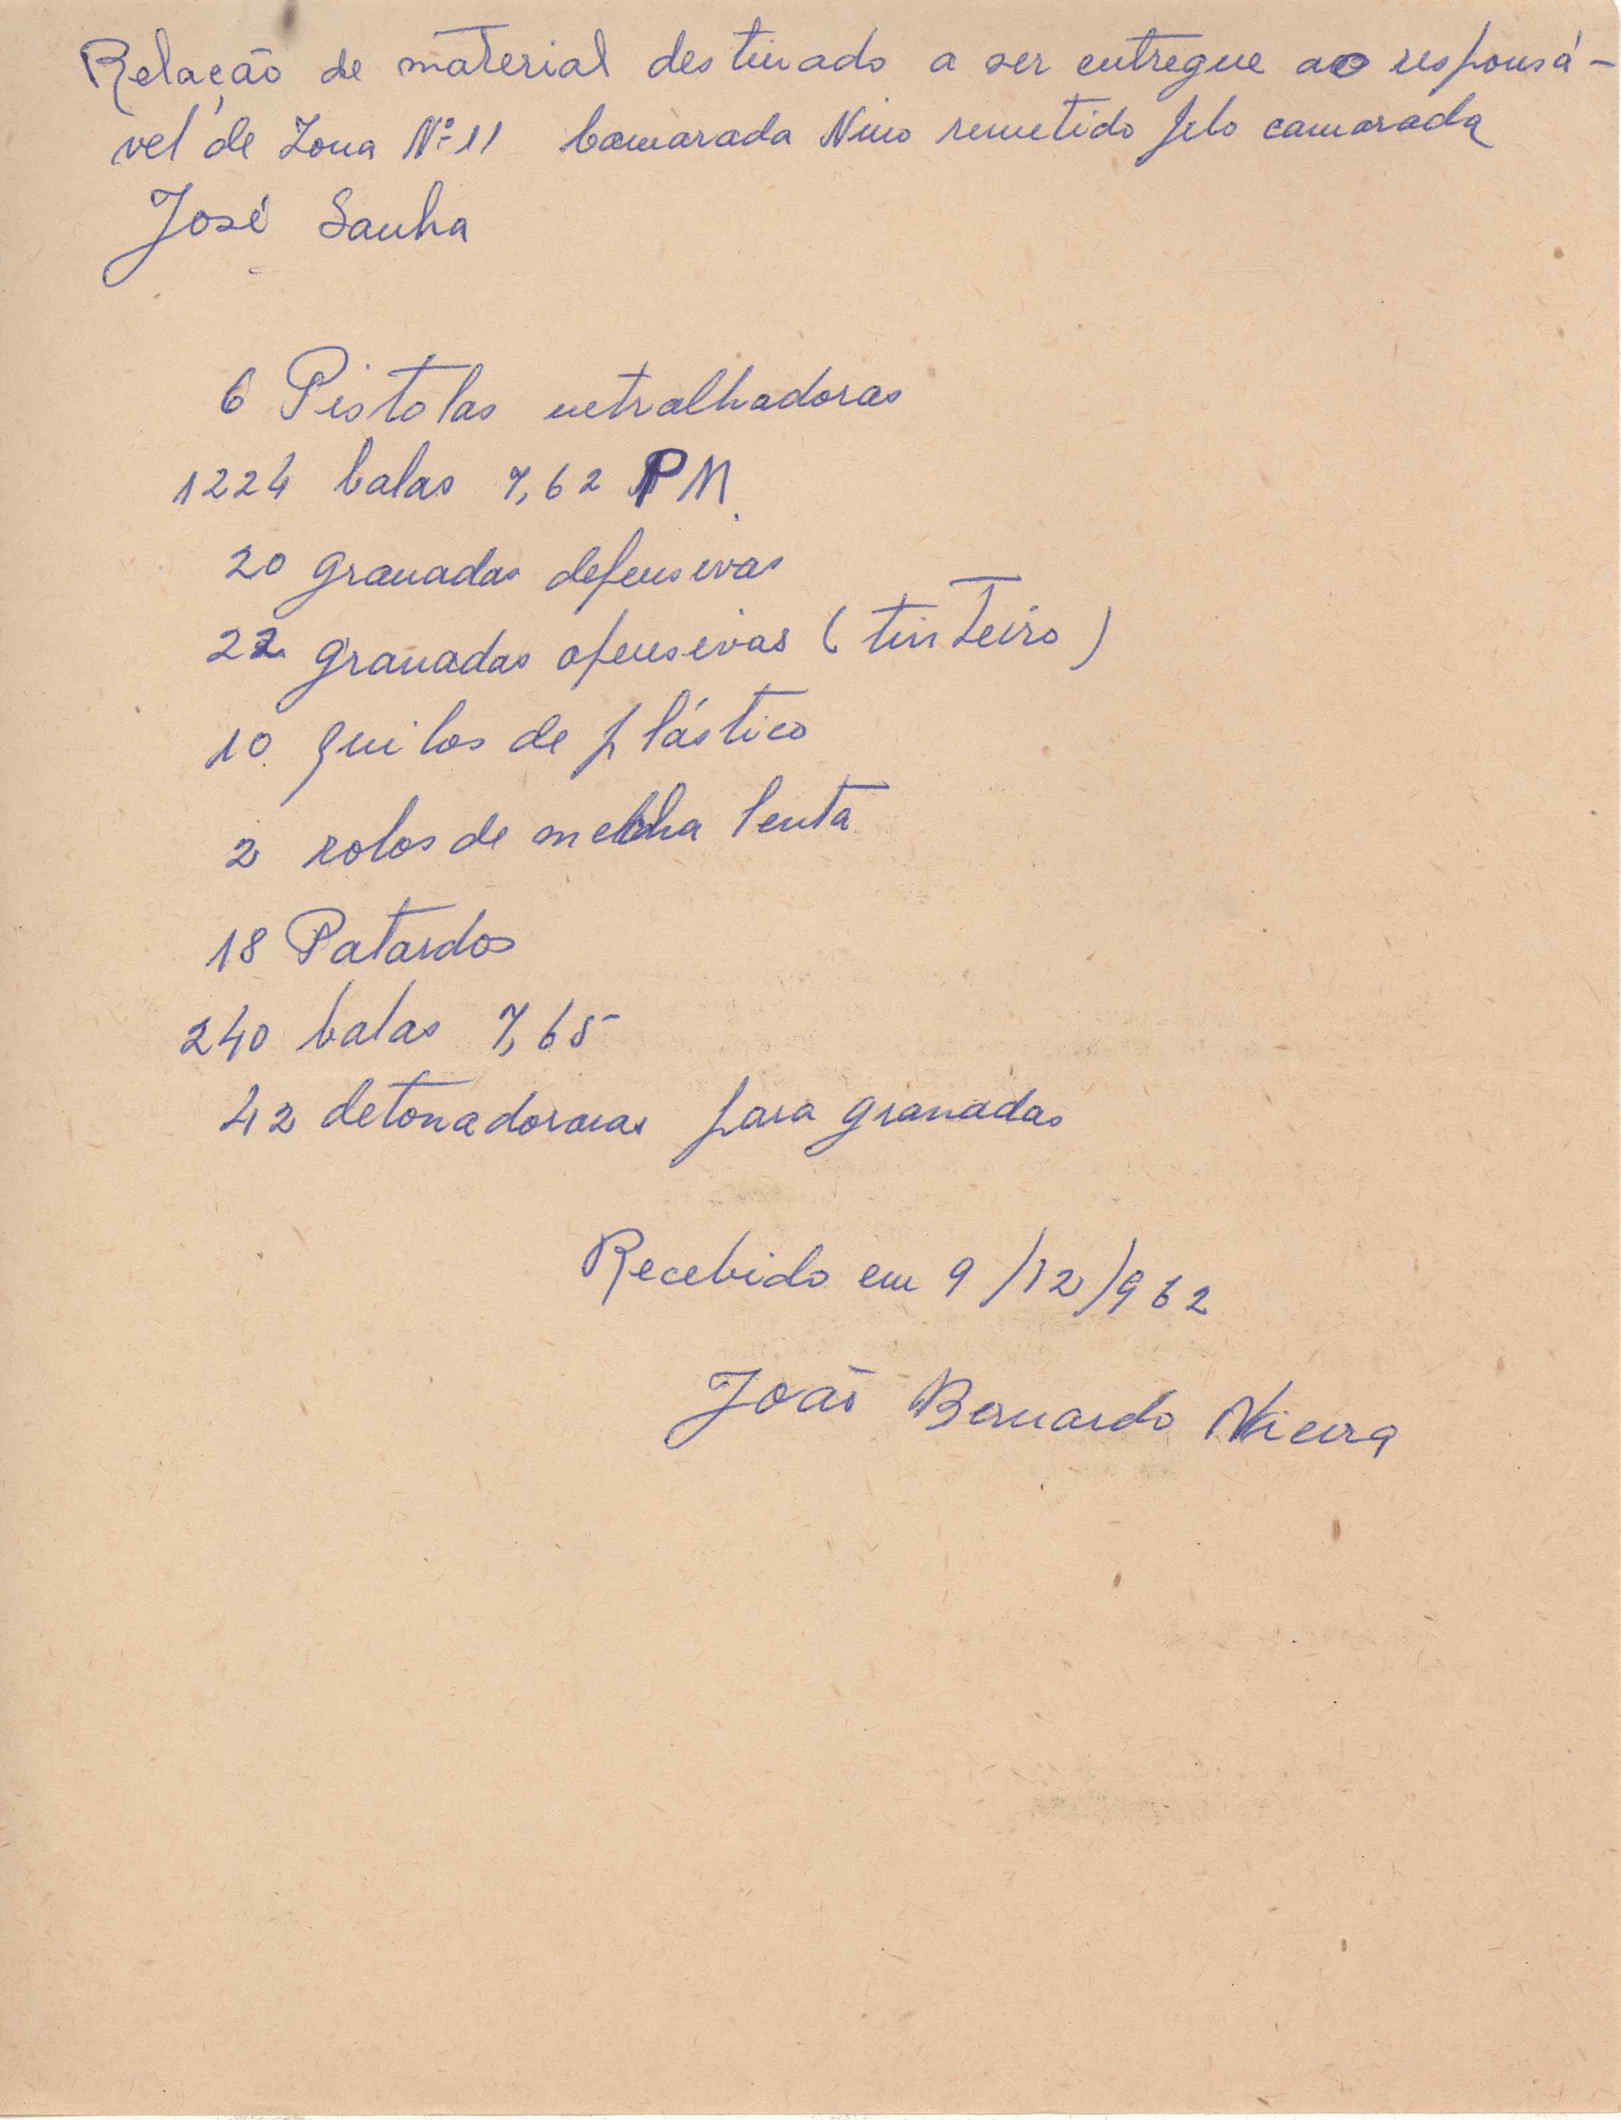 Relação de material destinado a ser entregue ao responsá-
vel de Zona Nº 11 Camarada Nino remetido pelo camarada
José Sanha
6 Pistolas metralhadoras
1224 balas 7,62 PM.
20 granadas defensivas
22 granadas ofensivas (tinteiro)
10 quilos de plástico
2 rolos de mecha lenta
18 Patardos
240 balas 7,65
42 para granadas
Recebido em 9/12/962
João Bernardo Vieira